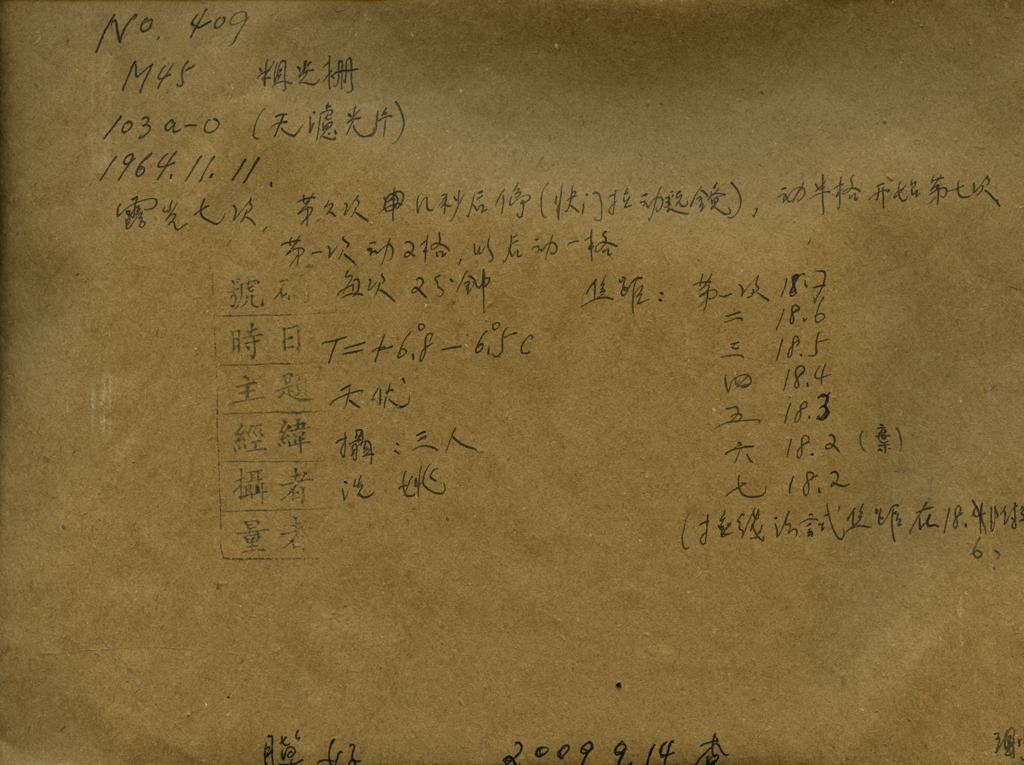 No. 409
M45 粗光栅
103a-O (天濾光片)
1964.11.11.
露光七次, 第六次 几秒后停(快门拉动远鏡), 动半格开始第七次
第一次动2格, 以后动一格
號 每次 25分钟 焦距: 第一次 18.7
二 18.6
時日 T=+6.°8-6.°5C 三 18.5
四 18.4
主題 天伏 五 18.3
經緯 攝:三人 六 18.2 (棄)
攝者 洗 姚 七 18.2
量者 (拉线法試焦距在18.4
6)
膜好 2009 9.14 查